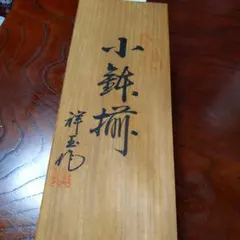 小鉢揃
祥玉作